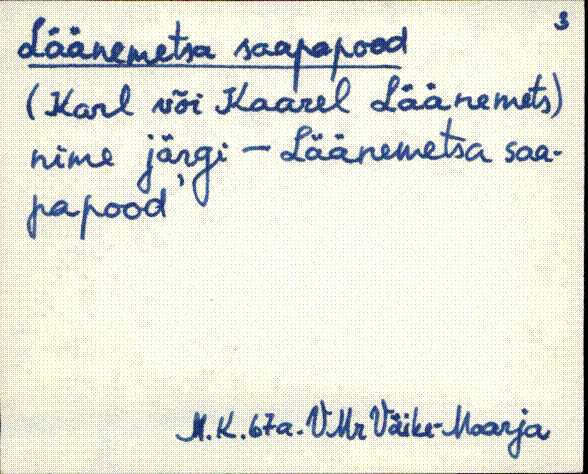 3
Läänemetsa saapapood
(Karl või Kaarel Läänemets)
nime järgi - Läänemetsa saa-
papood'
M.K. 67a. VMr Väike-Maarja